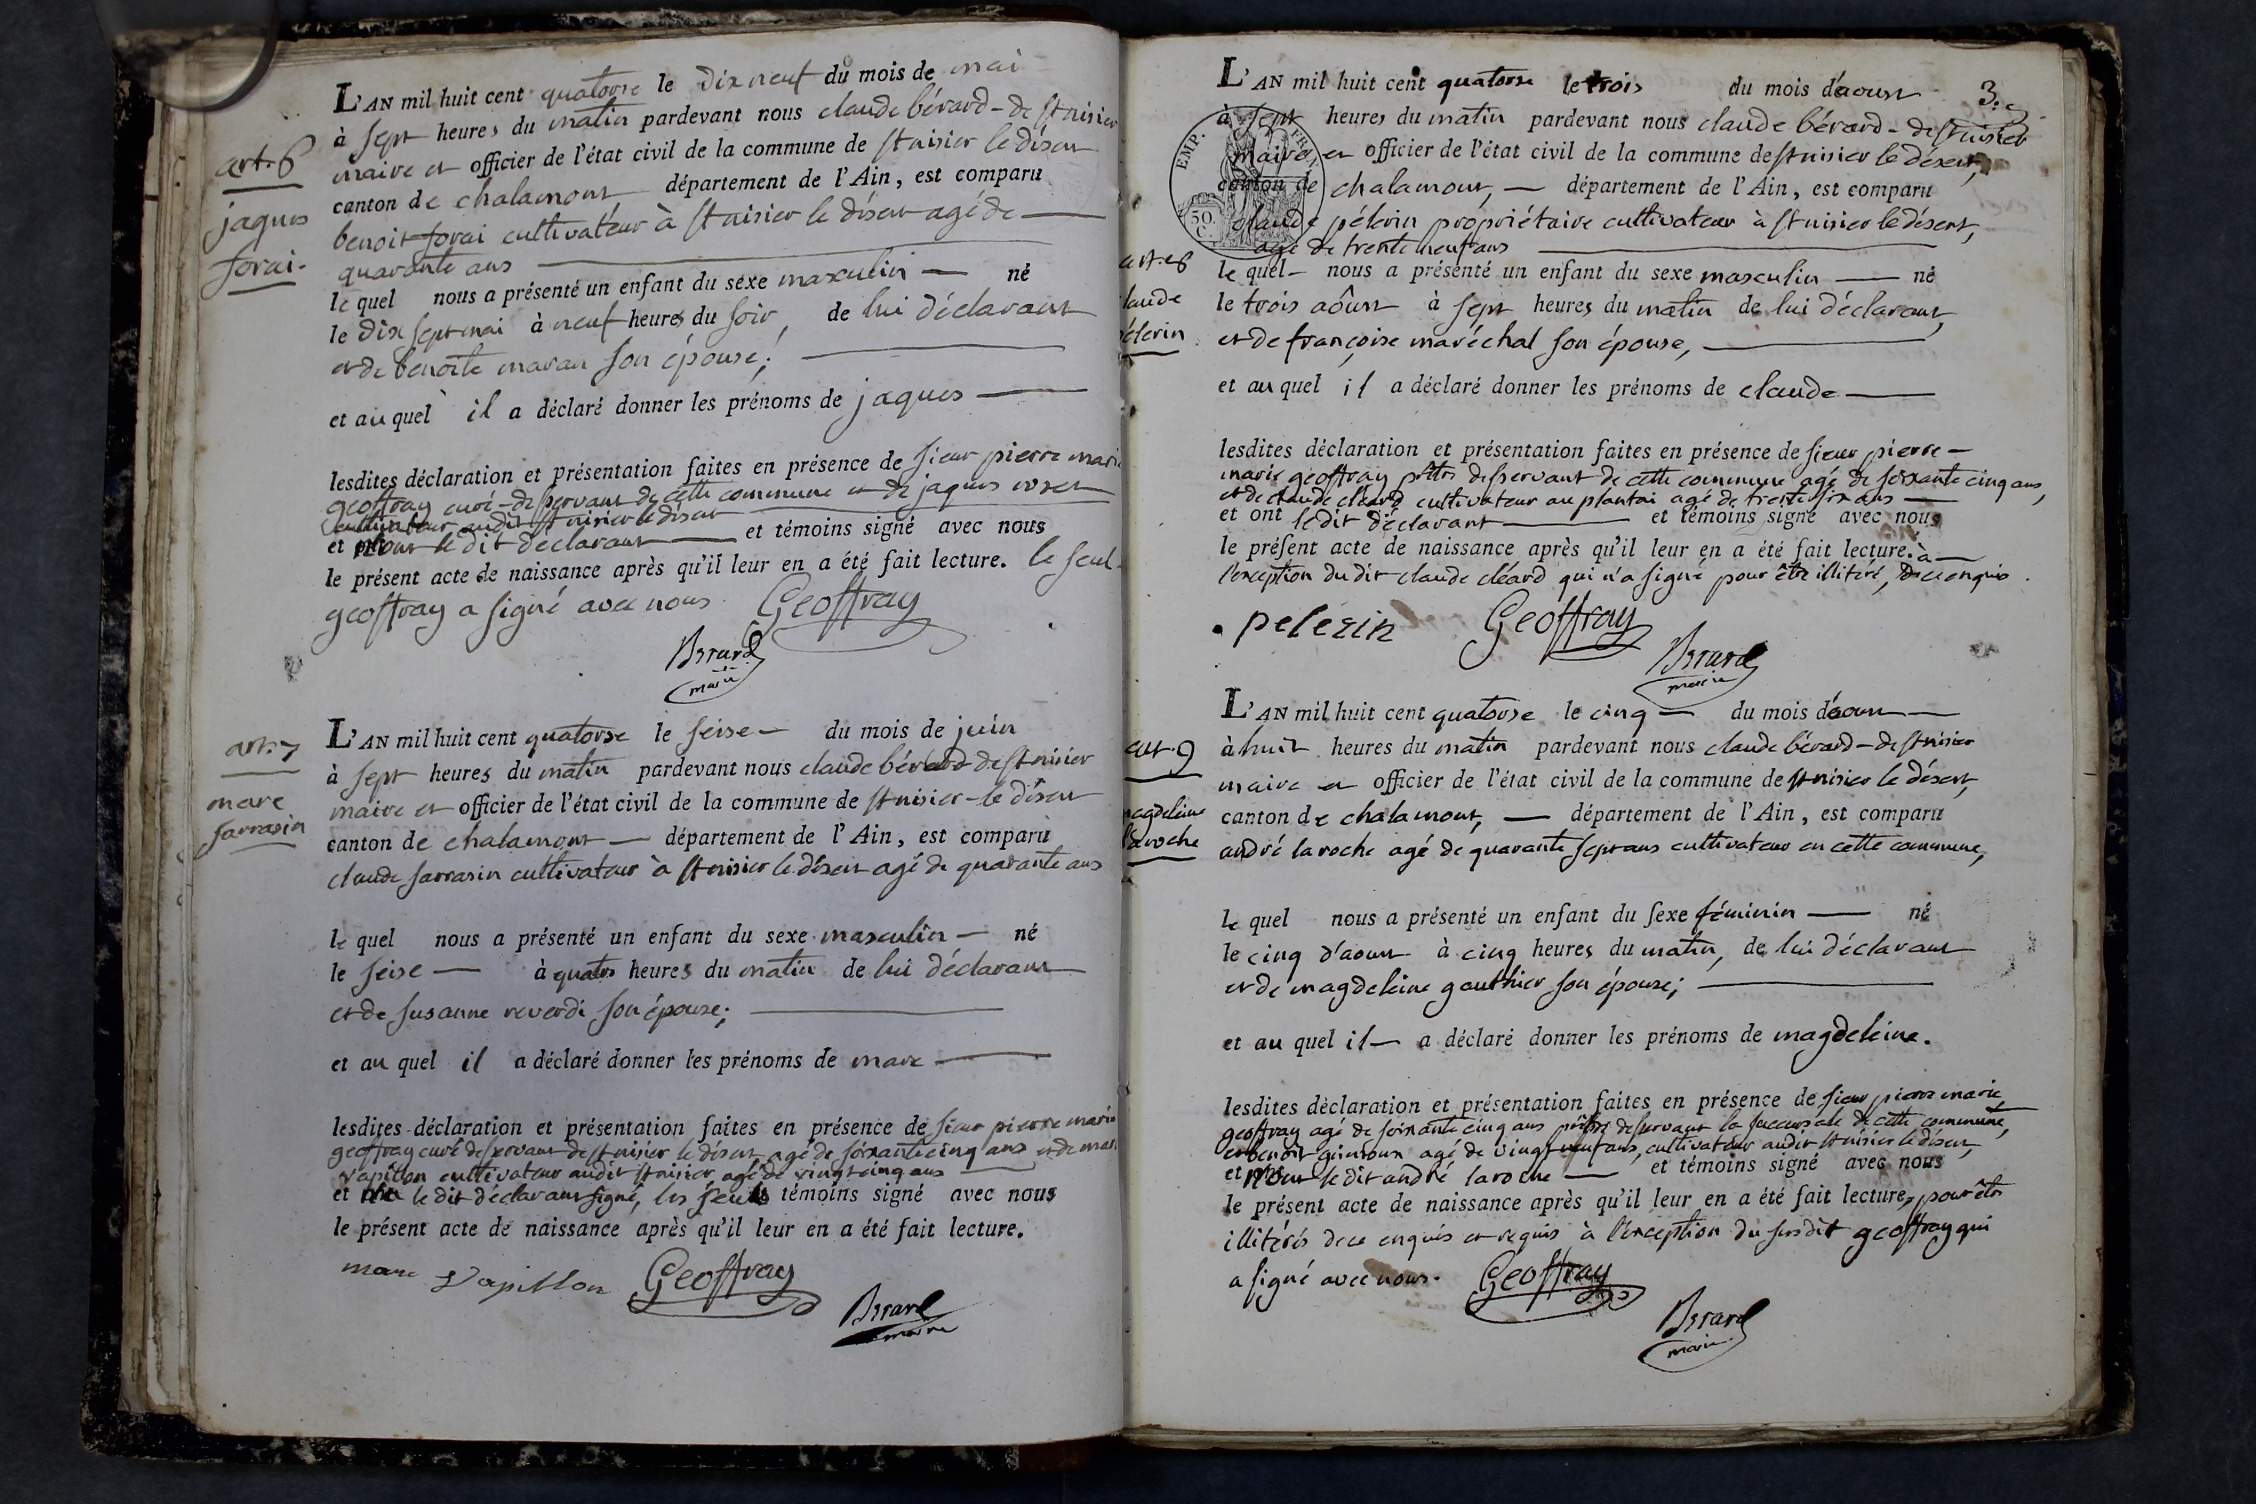 art. 6
jaques
forai.
L'AN mil huit cent quatorze le dix neuf du mois de mai
à sept heures du matin pardevant nous claude bérard - de st nisier
maire et officier de l'état civil de la commune de st nisier le désert
canton de chalamont département de l'Ain, est comparu
benoit forai cultivateur à st nisier le désert agé de
quarante ans
le quel nous a présenté un enfant du sexe masculin né
le dix sept mai à neuf heures du soir, de lui déclarant
et de benoite maran son épouse;
et au quel il a déclaré donner les prénoms de jaques
lesdites déclaration et présentation faites en présence de sieur pierre marie
geoffray curé-desservant de cette commune et de jaques
cultivateur audit st nisier le désert
et ledit déclarant et témoins signé avec nous
le présent acte de naissance après qu'il leur en a été fait lecture. le seul
geoffray a signé avec nous Geoffray
Brrard
maire
art. 7
marc
sarrasin
L'AN mil huit cent quatorze le seise du mois de juin
à sept heures du matin pardevant nous claude bérard de st nisier
maire et officier de l'état civil de la commune de st nisier-le désert
canton de chalamont département de l'Ain, est comparu
claude sarrasin cultivateur à st nisier le désert agé de quarante ans
le quel nous a présenté un enfant du sexe masculin né
le seise à quatre heures du matin de lui déclarant
et de susanne reverdi son épouse;
et au quel il a déclaré donner les prénoms de marc
lesdites déclaration et présentation faites en présence de sieur pierre marie
geoffray curé desservant de st nisier le désert agé de soixante cinq ans et de marc
vapillon cultivateur audit st nisier agé de vingt cinq ans
et le dit déclarant signé, les seuls témoins signé avec nous
le présent acte de naissance après qu'il leur en a été fait lecture.
marc vapillon Geoffray
Brrard
maire
3.e
EMP. FR.
50 C.
art. 8
claude
pélerin
L'AN mil huit cent quatorze le trois du mois d'aoust
à sept heures du matin pardevant nous claude bérard - de st nisier
maire, et officier de l'état civil de la commune de st nisier le désert,
canton de chalamont, département de l'Ain, est comparu
claude pélerin propriétaire cultivateur à st nisier le désert,
agé de trente neuf ans
le quel nous a présenté un enfant du sexe masculin né
le trois aoûst à sept heures du matin de lui déclarant,
et de françoise maréchal son épouse,
et au quel il a déclaré donner les prénoms de claude
lesdites déclaration et présentation faites en présence de sieur pierre
marie geoffray prêtre desservant de cette commune agé de soixante cinq ans,
et de claude cléard cultivateur au plantai agé de trente six ans
et ont ledit déclarant et témoins signé avec nous
le présent acte de naissance après qu'il leur en a été fait lecture. à
l'exception du dit claude cléard qui n'a signé pour être illitéré, de ce enquis
pelerin Geoffray
Brrard
maire
art. 9
magdeleine
laroche
L'AN mil huit cent quatorze le cinq du mois d'aoust
à huit heures du matin pardevant nous claude bérard - de st nisier
maire et officier de l'état civil de la commune de st nisier le désert,
canton de chalamont, département de l'Ain, est comparu
andré laroche agé de quarante sept ans cultivateur en cette commune,
le quel nous a présenté un enfant du sexe féminin né
le cinq d'aoust à cinq heures du matin, de lui déclarant
et de magdeleine gauthier son épouse;
et au quel il a déclaré donner les prénoms de magdeleine.
lesdites déclaration et présentation faites en présence de sieur pierre marie
geoffray agé de soixante cinq ans prêtre desservant la succursale de cette commune,
et benoit agé de vingt neuf ans, cultivateur audit st nisier le désert,
et ledit andré laroche et témoins signé avec nous
le présent acte de naissance après qu'il leur en a été fait lecture, pour être
illitérés de ce enquis et requis à l'exception du susdit geoffray qui
a signé avec nous. Geoffray
Brrard
maire